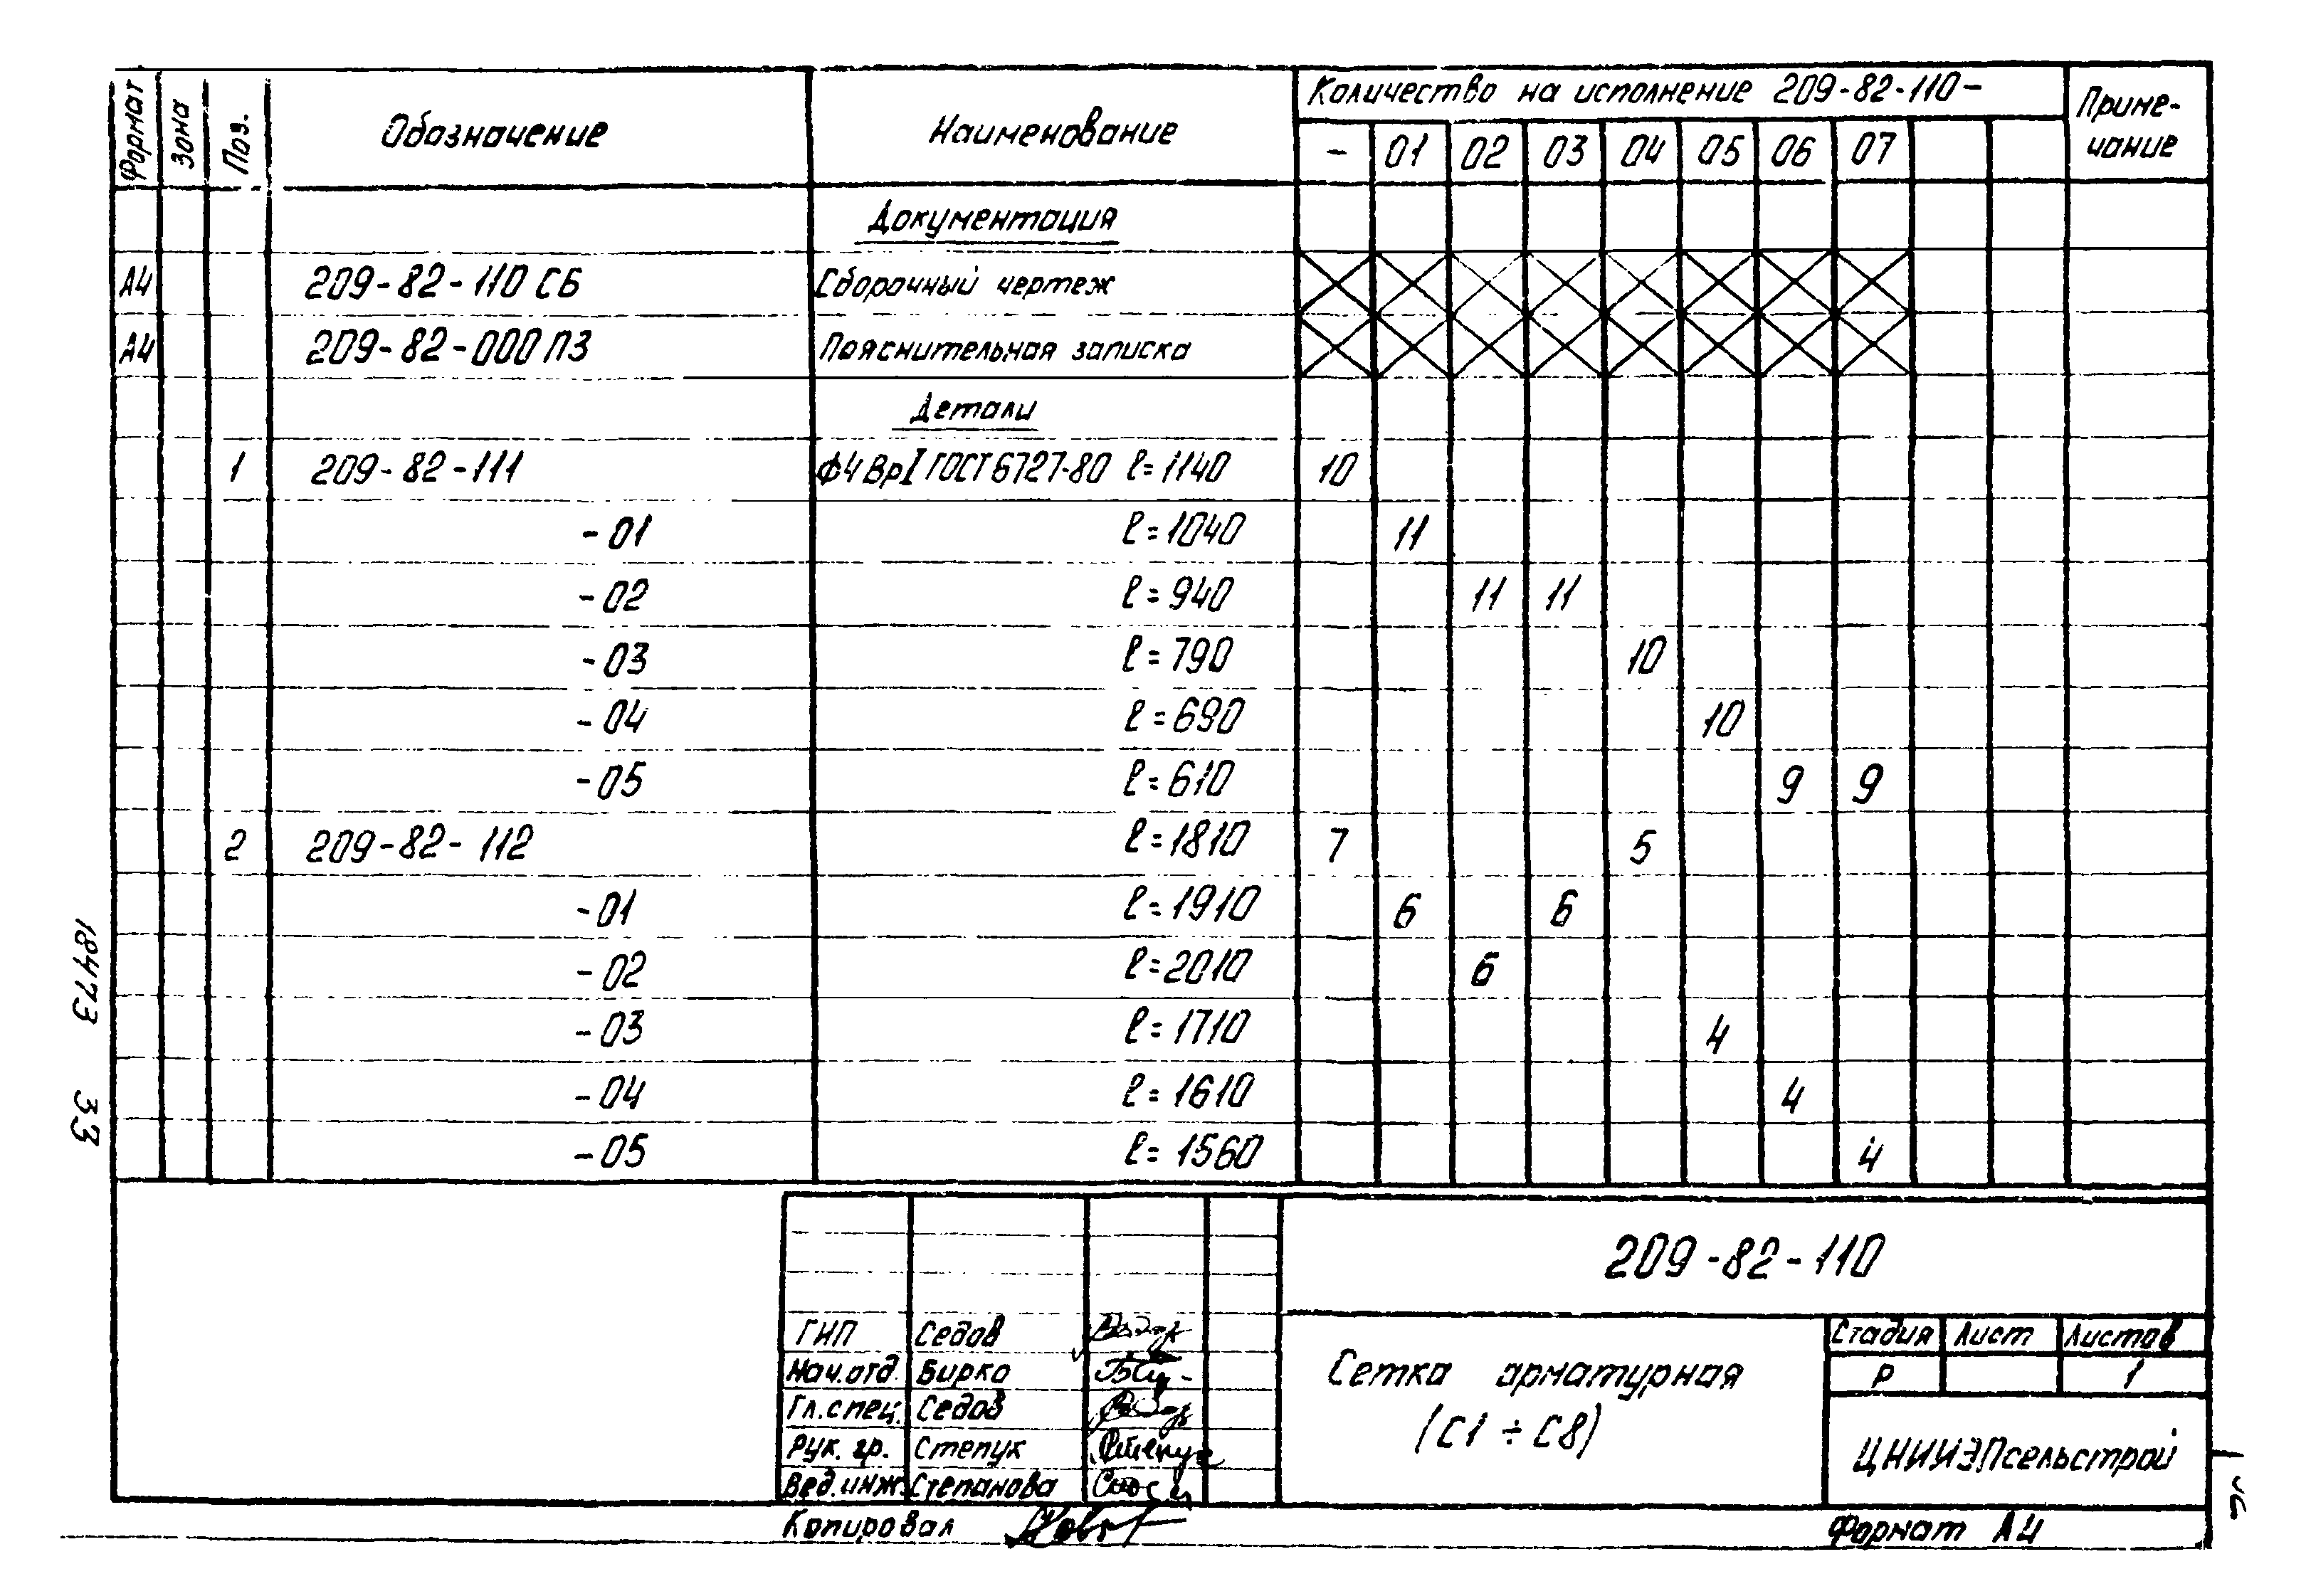 Формат Зона Поз. Обозначение Наименование Количество на исполнение 209-82-110- Приме-
чание
- 01 02 03 04 05 06 07
Документация
А4 209-82-110 СБ Сборочный чертеж
А4 209-82-000 ПЗ Пояснительная записка
Детали
1 209-82-111 ф4 ВрI ГОСТ 6727-80 ℓ=1140 10
-01 ℓ=1040 11
-02 ℓ=940 11 11
-03 ℓ=790 10
-04 ℓ=690 10
-05 ℓ=610 9 9
2 209-82-112 ℓ=1810 7 5
-01 ℓ=1910 6 6
-02 ℓ=2010 6
-03 ℓ=1710 4
-04 ℓ=1610 4
-05 ℓ=1560 4
18473 33
209-82-110
ГИП Седов
Нач.отд. Бирко
Гл.спец. Седов
Рук. гр. Степук
Вед.инж. Степанова
Сетка арматурная
(С1 ÷ С8)
Стадия Лист Листов
Р 1
ЦНИИЭПсельстрой
Копировал
Формат А4